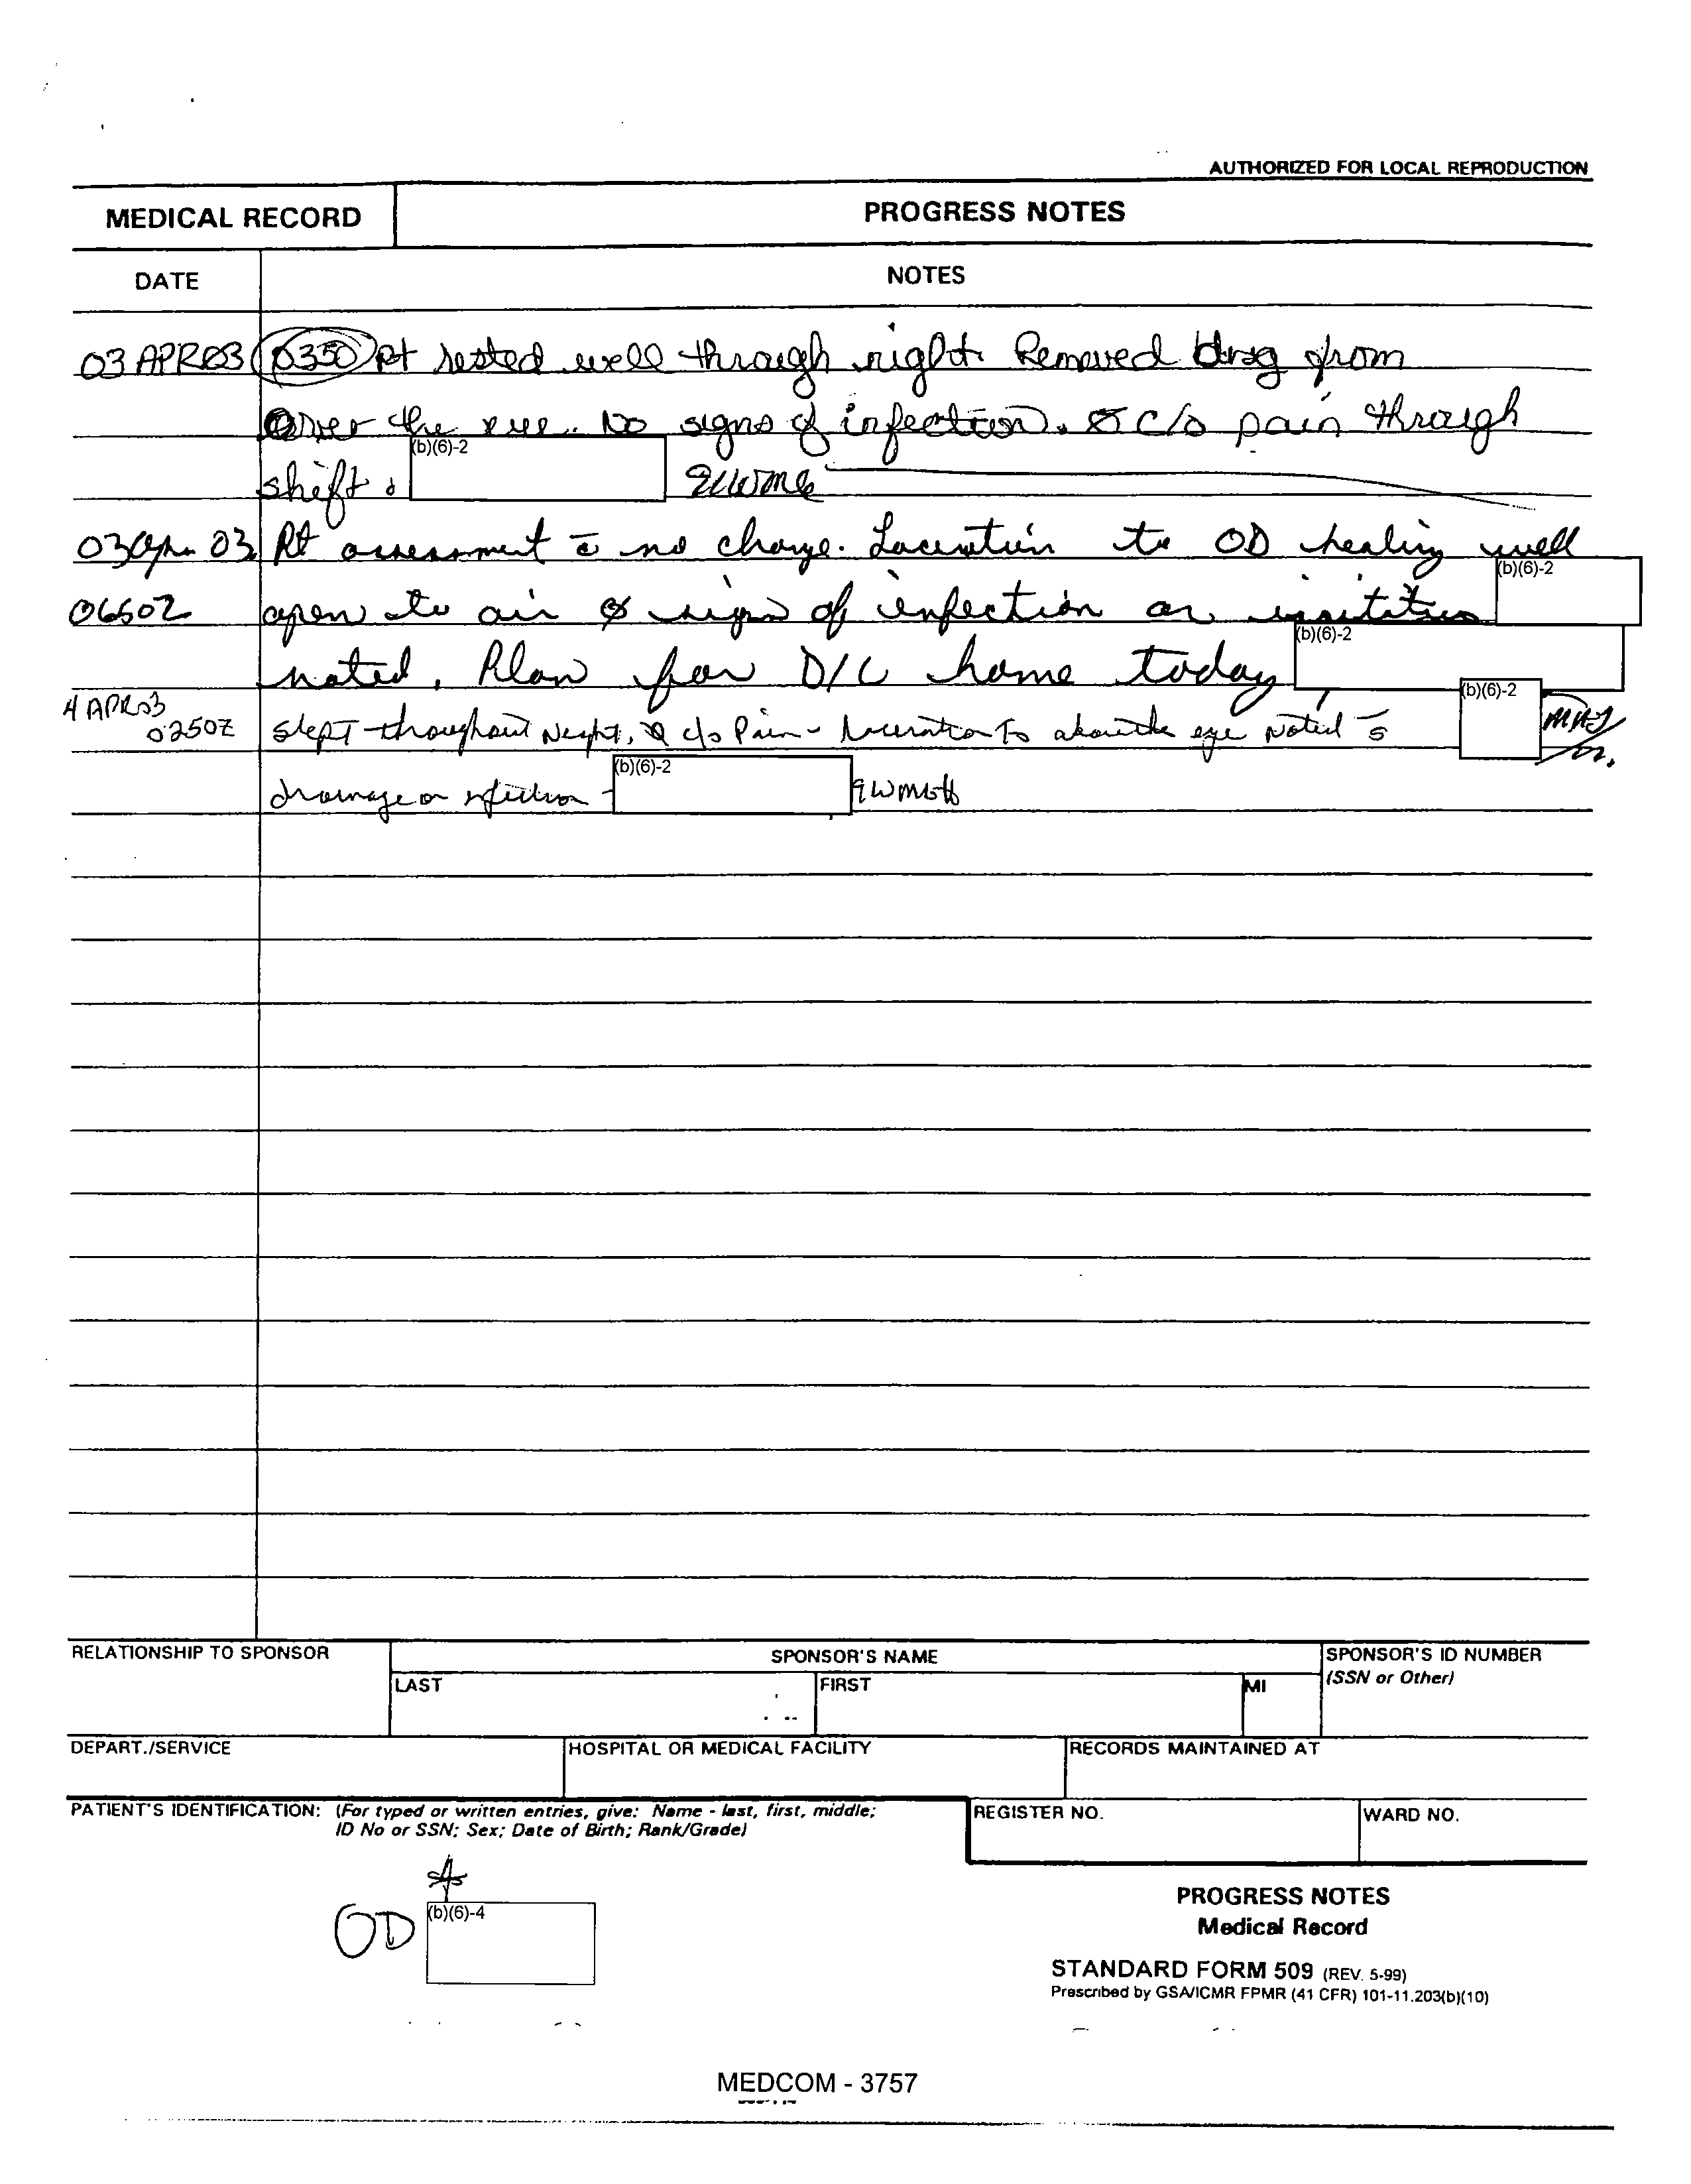 AUTHORIZED FOR LOCAL REPRODUCTION
MEDICAL RECORD PROGRESS NOTES
DATE NOTES
03 APR03 0350 Pt rested well through night. Removed drsg from
over the eye. No signs of infection. Ø c/o pain through
shift. (b)(6)-2 91WM6
03 Apr 03 Pt assessment c̄ no change. Laceration to OD healing well
0650Z open to air Ø signs of infection or irritation (b)(6)-2
noted. Plan for D/C home today (b)(6)-2
4 APR03 0250Z slept throughout Night, Ø c/o Pain - laceration to above the eye Noted s̄ (b)(6)-2
drainage or infection - (b)(6)-2 91WM6
RELATIONSHIP TO SPONSOR SPONSOR'S NAME SPONSOR'S ID NUMBER
(SSN or Other)
LAST FIRST MI
DEPART./SERVICE HOSPITAL OR MEDICAL FACILITY RECORDS MAINTAINED AT
PATIENT'S IDENTIFICATION: (For typed or written entries, give: Name - last, first, middle;
ID No or SSN; Sex; Date of Birth; Rank/Grade)
REGISTER NO. WARD NO.
OD (b)(6)-4
PROGRESS NOTES
Medical Record
STANDARD FORM 509 (REV. 5-99)
Prescribed by GSA/ICMR FPMR (41 CFR) 101-11.203(b)(10)
MEDCOM - 3757